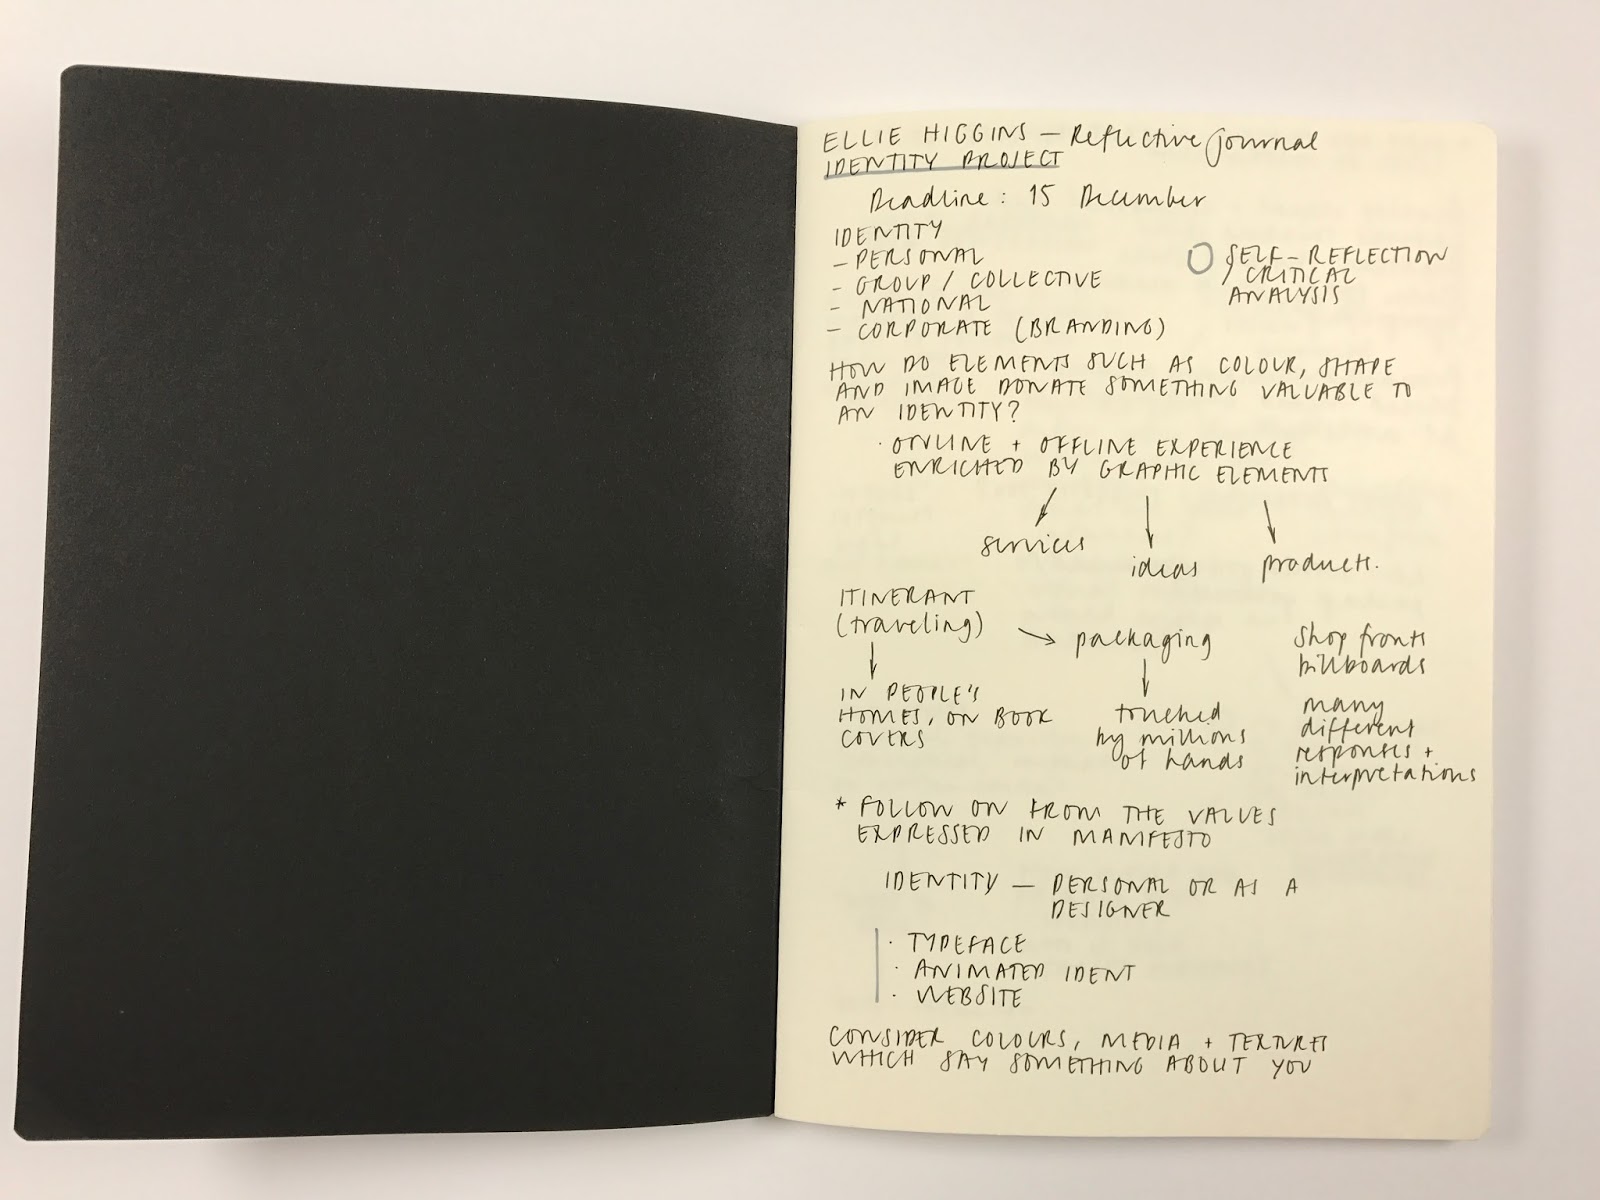 ELLIE HIGGINS — Reflective journal
IDENTITY PROJECT
Deadline: 15 December
IDENTITY
— PERSONAL
- GROUP / COLLECTIVE
- NATIONAL
— CORPORATE (BRANDING)
SELF-REFLECTION
/ CRITICAL
ANALYSIS
HOW DO ELEMENTS SUCH AS COLOUR, SHAPE
AND IMAGE DONATE SOMETHING VALUABLE TO
AN IDENTITY?
· ONLINE + OFFLINE EXPERIENCE
ENRICHED BY GRAPHIC ELEMENTS
services
ideas
products.
ITINERANT
(traveling)
IN PEOPLE'S
HOMES, ON BOOK
COVERS
packaging
touched
by millions
of hands
Shop fronts
billboards
many
different
responses +
interpretations
* FOLLOW ON FROM THE VALUES
EXPRESSED IN MANIFESTO
IDENTITY — PERSONAL OR AS A
DESIGNER
· TYPEFACE
· ANIMATED IDENT
· WEBSITE
CONSIDER COLOURS, MEDIA + TEXTURES
WHICH SAY SOMETHING ABOUT YOU